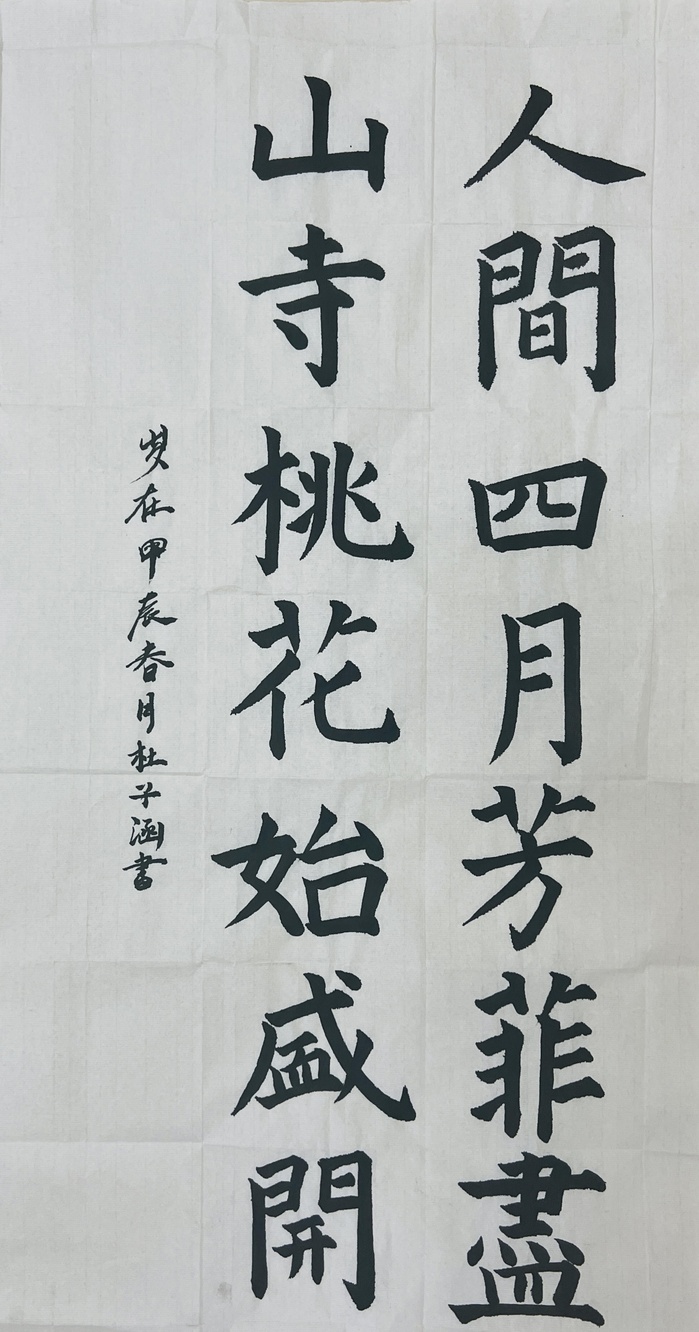 人間四月芳菲盡
山寺桃花始盛開
歲在甲辰春月杜子涵書